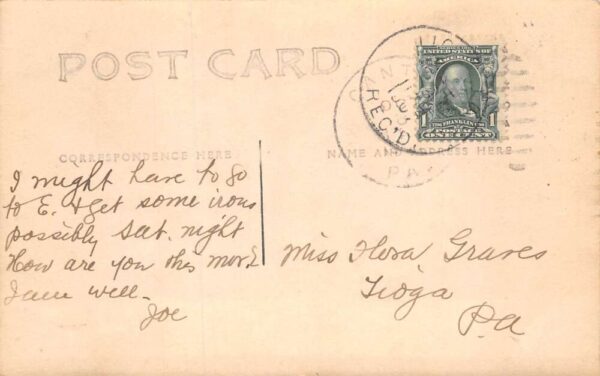 POST CARD
CORRESPONDENCE HERE
NAME AND ADDRESS HERE
REC'D
PA
SERIES 1902
AMERICA
1 1
FRANKLIN
POSTAGE
ONE CENT
I might have to go
to E. & get some irons
possibly Sat. night
How are you this morn?
I am well-
Joe
Miss Flora Graves
Tioga
Pa